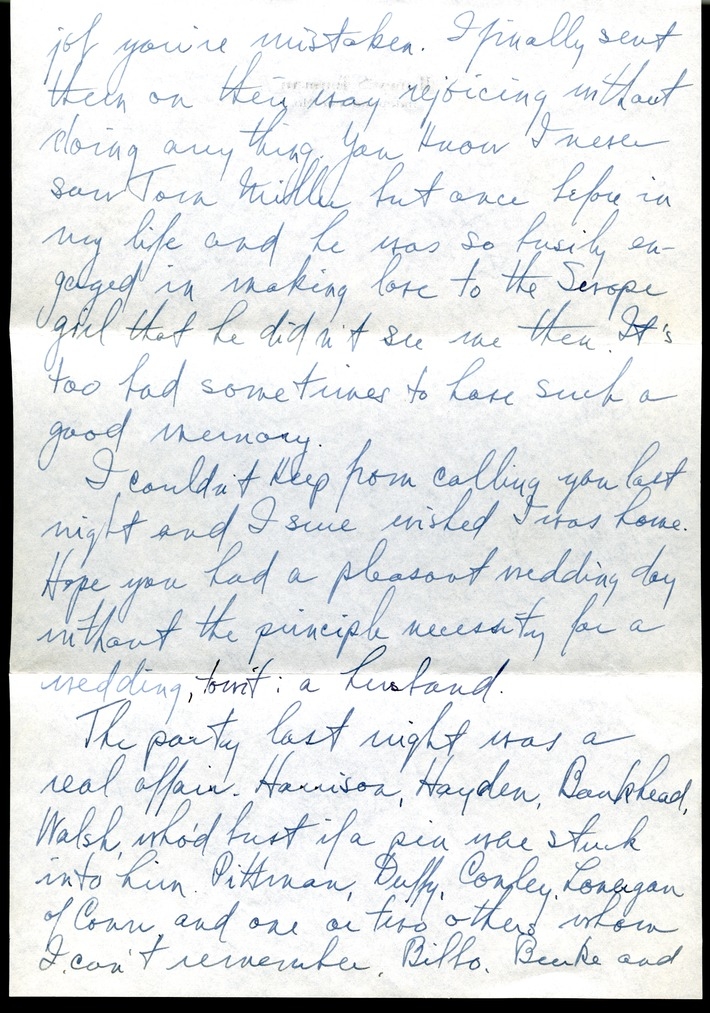 job you're mistaken. I finally sent
them on their way rejoicing without
doing anything. You know I never
saw Tom Miller but once before in
my life and he was so busily en-
gaged in making love to the
girl that he didn't see me then. It's
too bad sometimes to have such a
good memory.
I couldn't keep from calling you last
night and I sure wished I was home.
Hope you had a pleasant wedding day
without the principle necessity for a
wedding, towit: a husband.
The party last night was a
real affair. Harrison, Hayden, Bankhead,
Walsh, who'd bust if a pin was stuck
into him. Pittman, Duffy, Conley, Lonergan
of Conn. and one or two others whom
I can't remember. Bilbo. Burke and